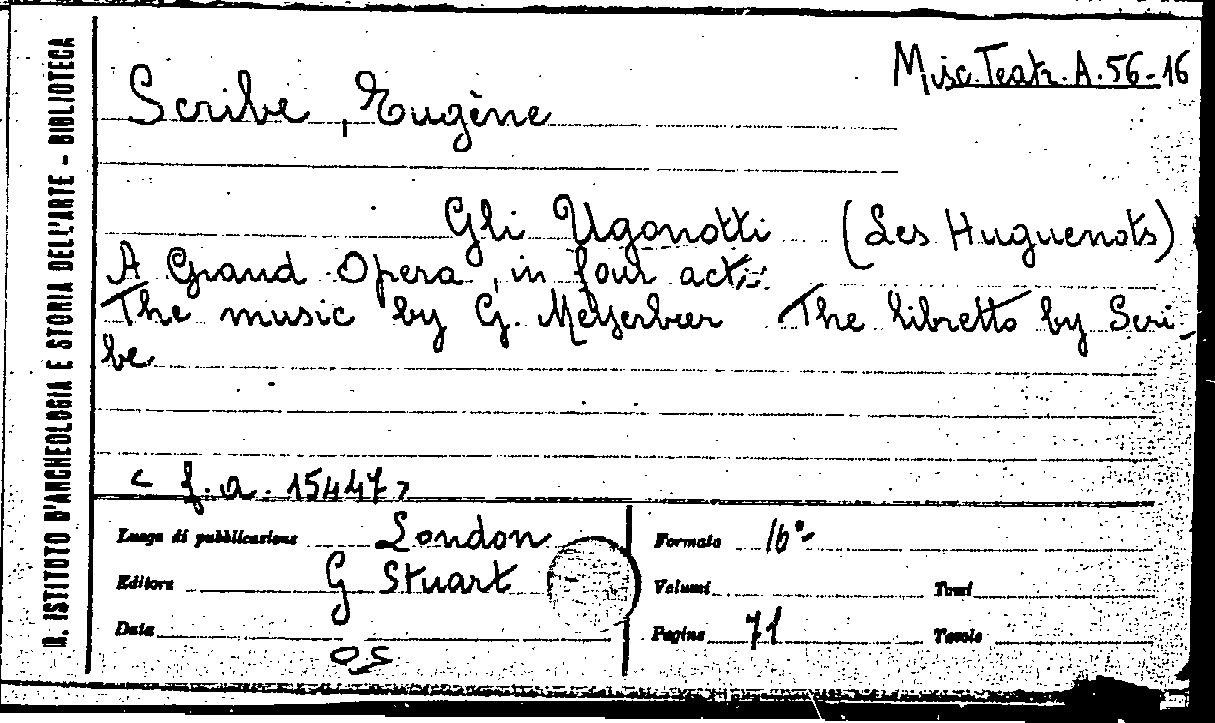 Misc. Teatr. A. 56-16
Scribe, Eugène
Gli Ugonotti (Les Huguenots)
A Grand Opera, in four acts.
The music by G. Meyerbeer The libretto by Scri-
be
< f. a. 15447 >
Luogo di pubblicazione London
Editore G Stuart
Data
Formato 16°-
Volumi Tomi
Pagine 71 Tavole
R. ISTITUTO D'ARCHEOLOGIA E STORIA DELL'ARTE - BIBLIOTECA